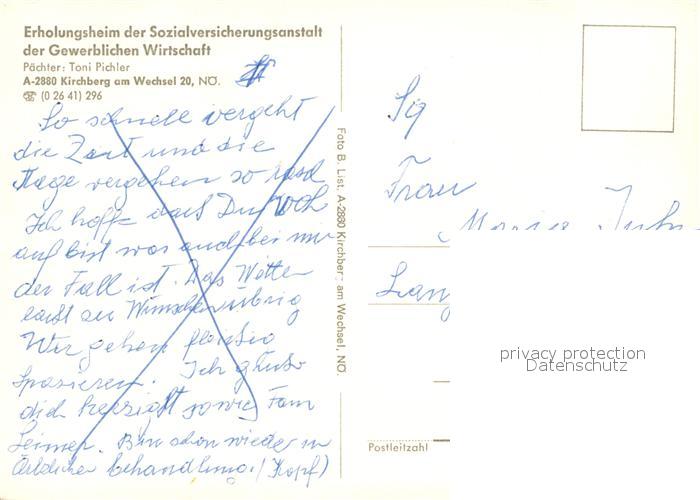 Erholungsheim der Sozialversicherungsanstalt
der Gewerblichen Wirtschaft
Pächter: Toni Pichler
A-2880 Kirchberg am Wechsel 20, NÖ.
☎ (0 26 41) 296
So schnell vergeht
die Zeit und die
Tage vergehen so rasch
Ich hoffe das Du Wohl
auf bist was auch bei mir
der Fall ist. Das Wetter
lasst zu Wünschen übrig
Wir gehen fleissig
spazieren. Ich grüsse
dich herzlichst sowie Fam
Bin schon wieder in
Ärtzlicher behandlung. (Kopf)
Foto B. List, A-2880 Kirchberg am Wechsel, NÖ.
Frau
Maria
privacy protection
Datenschutz
Postleitzahl